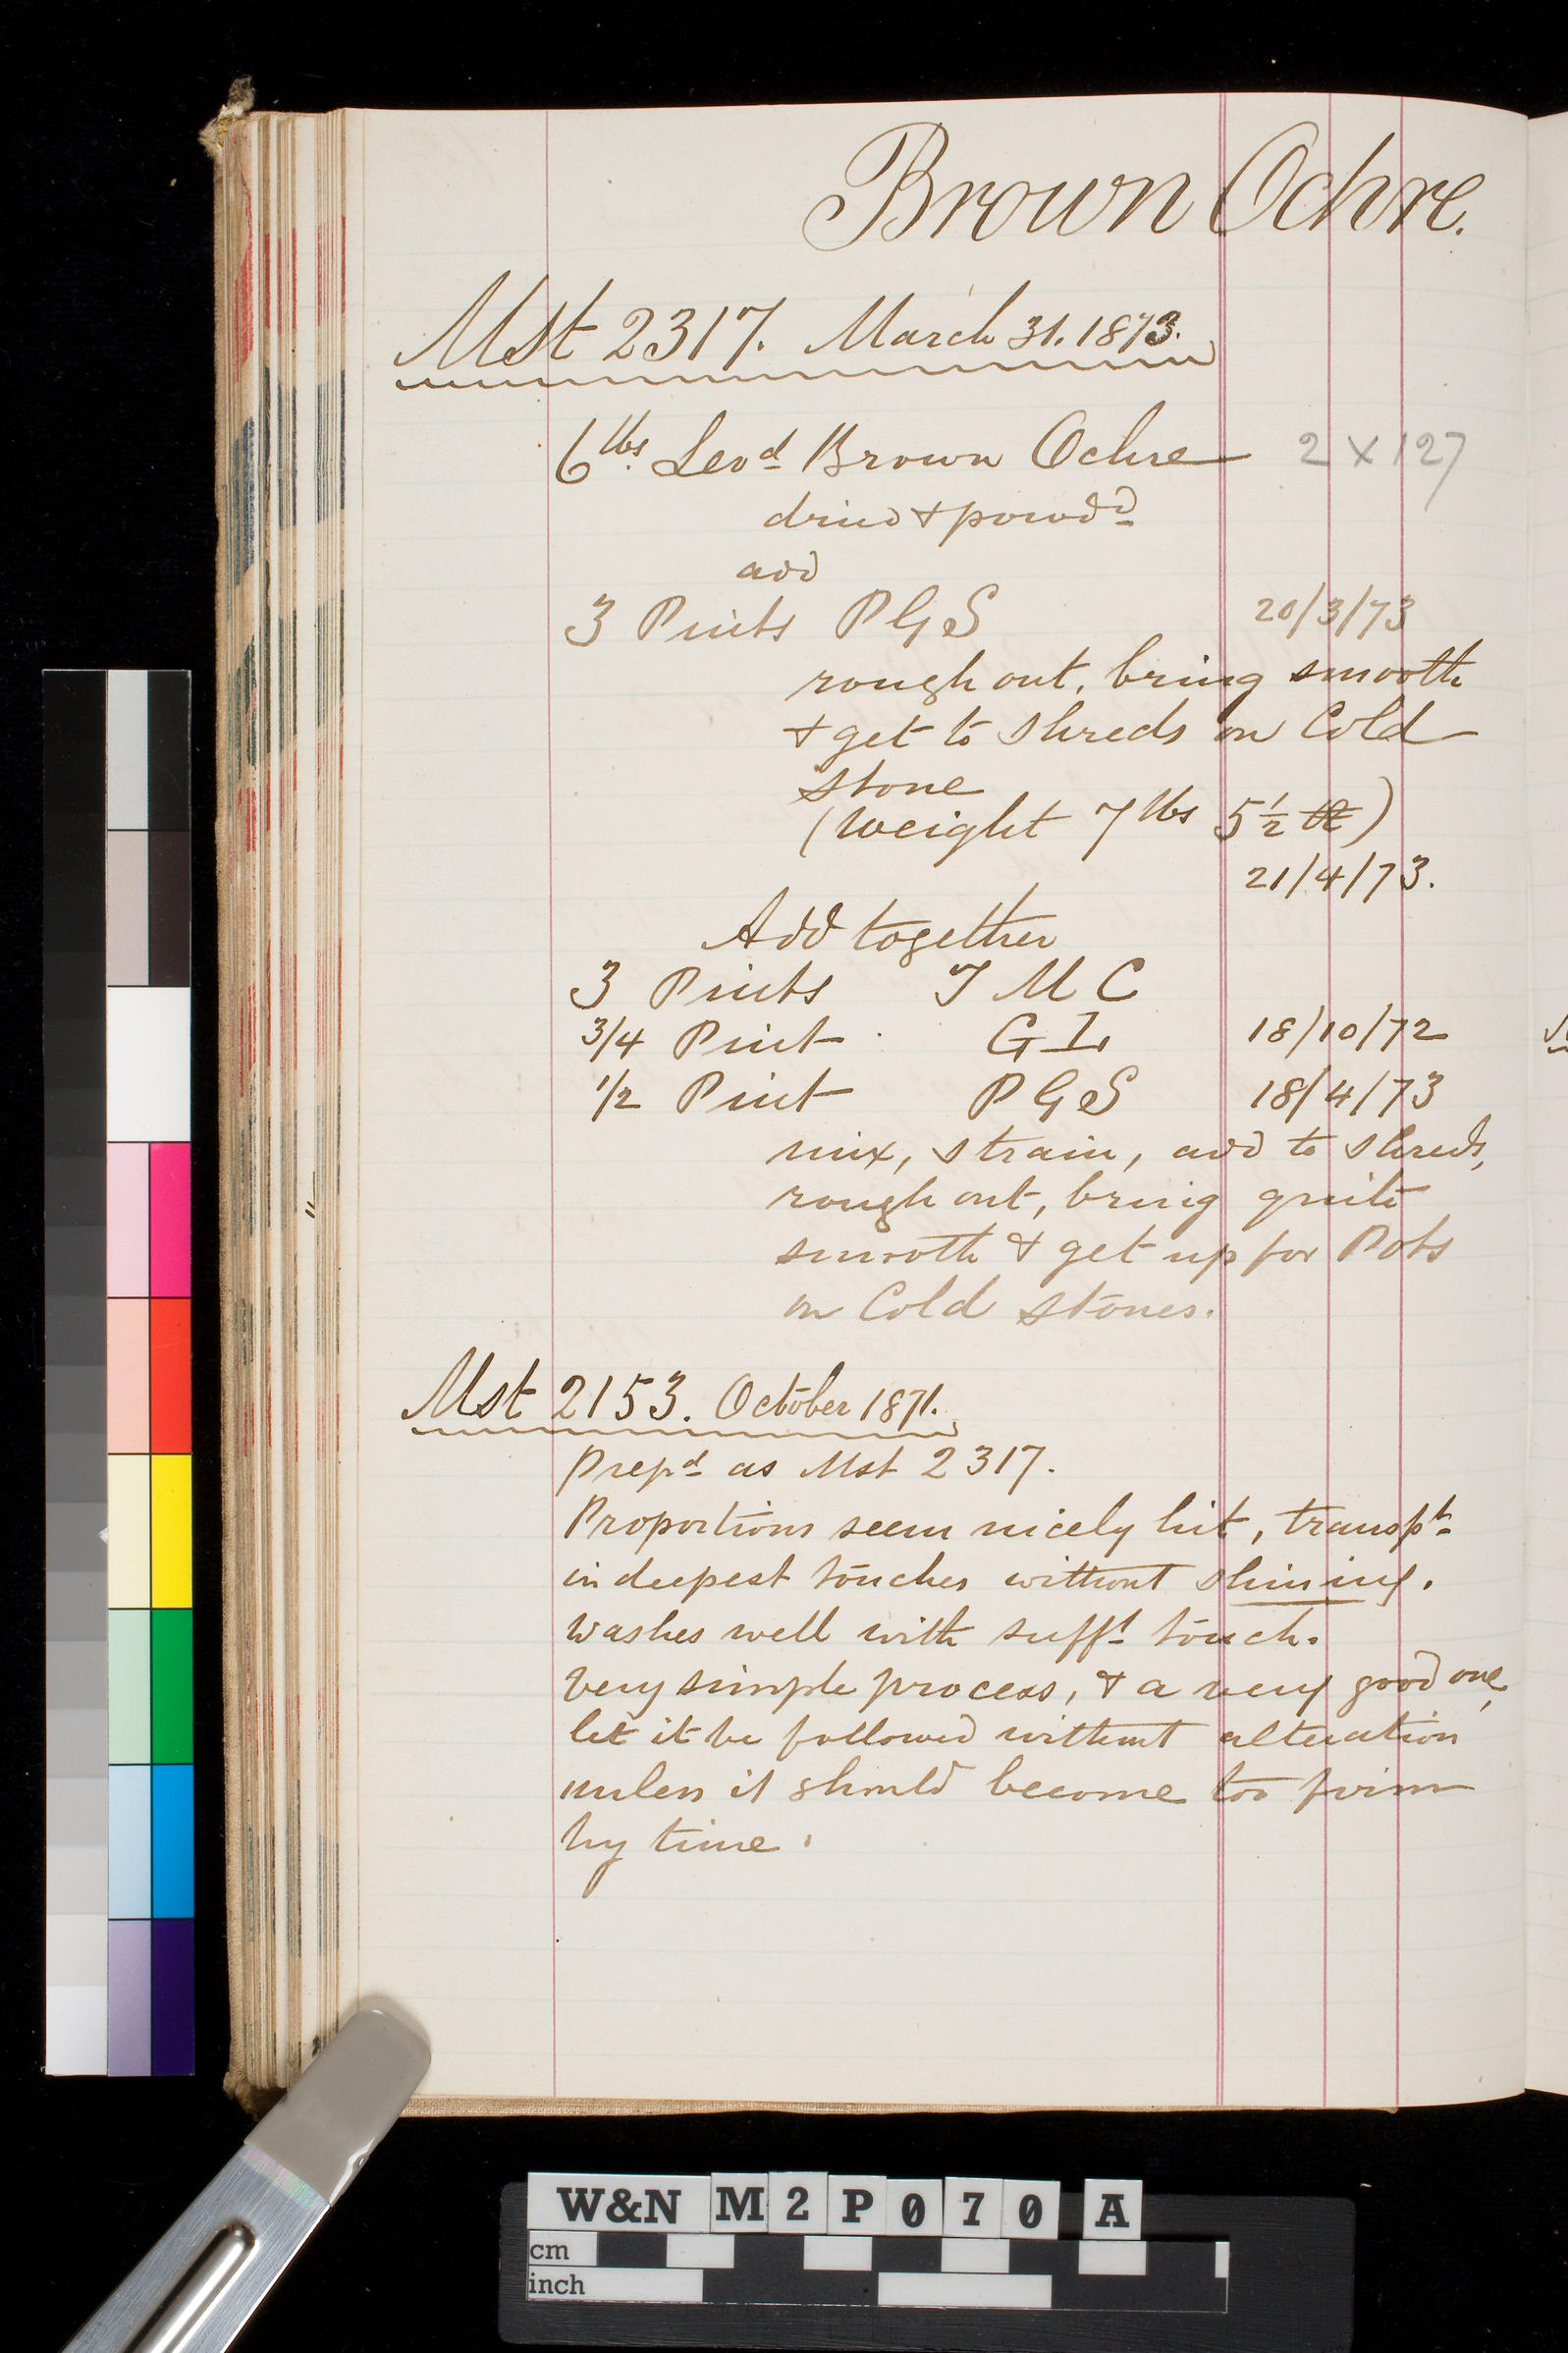 Brown Ochre.
Mst 2317. March 31. 1873.
6 lbs. Levd Brown Ochre 2 X 127
dried & powdd
add
3 Pints PGS 20/3/73
rough out, bring smooth
& get to shreds on Cold
stone
(Weight 7 lbs 5 1/2 )
21/4/73.
Add together
3 Pints T M C
3/4 Pint G I. 18/10/72
1/2 Pint P G S 18/4/73
mix, strain, add to shreds,
rough out, bring quite
smooth & get up for Pots
on Cold stones.
Mst 2153. October 1871.
Prepd as Mst 2317.
Proportions seem nicely hit, transpt
in deepest touches without shining.
Washes well with sufft touch.
Very simple process, & a very good one,
let it be followed without alteration
unless it should become too firm
by time.
W&N M2P070 A
cm
inch